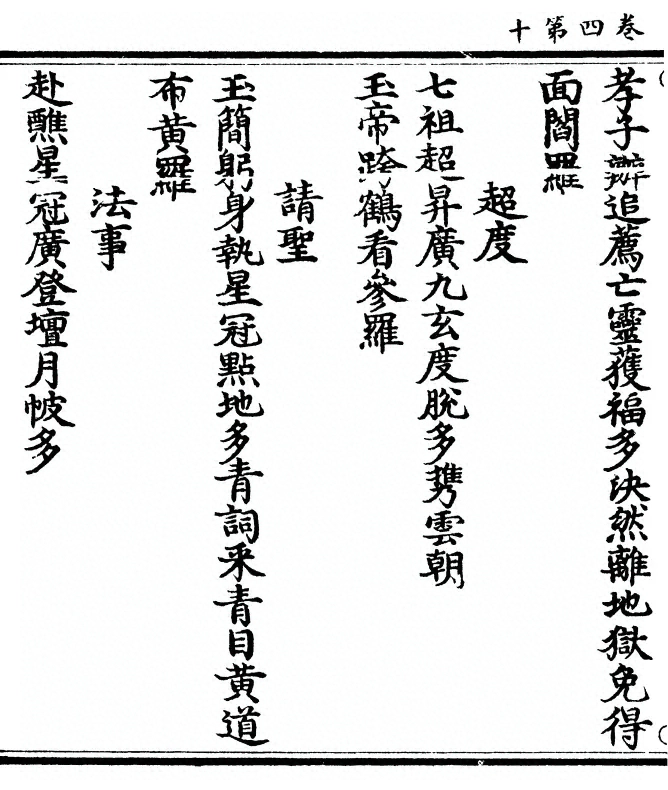 卷四第十
孝子辦追薦亡靈獲福多決然離地獄免得
面閻羅
超度
七祖超昇廣九玄度脫多携雲朝
玉帝跨鶴看參羅
請聖
玉簡躬身執星冠點地多青詞釆青目黃道
布黃羅
法事
赴醮星冠廣登壇月帔多